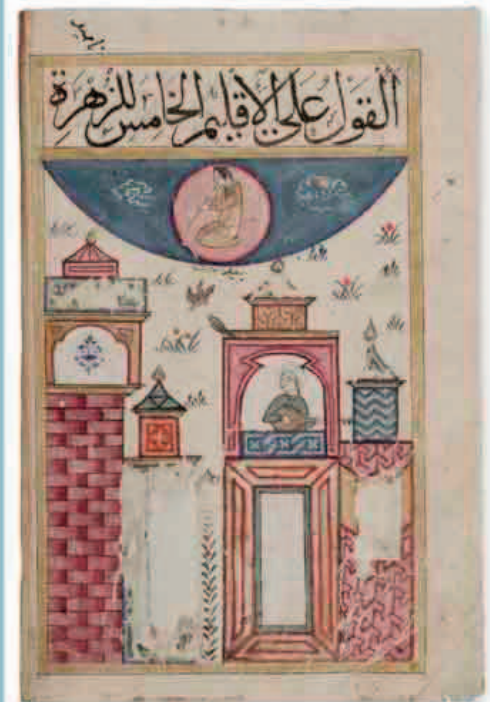 القول على الاقليم الخامس للزهرة